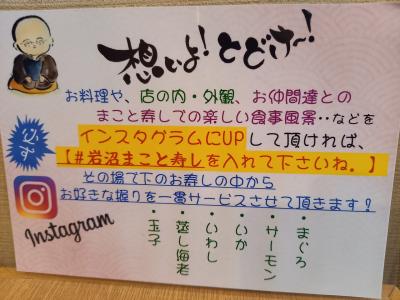 想いよ!とどけ〜!
お料理や、店の内・外観、お仲間達との
まこと寿しでの楽しい食事風景‥などを
必ず
インスタグラムにUPして頂ければ、
【#岩沼まこと寿しを入れて下さいね。】
その場で下のお寿しの中から
お好きな握りを一貫サービスさせて頂きます!
Instagram
・まぐろ
・サーモン
・いか
・いわし
・蒸し海老
・玉子